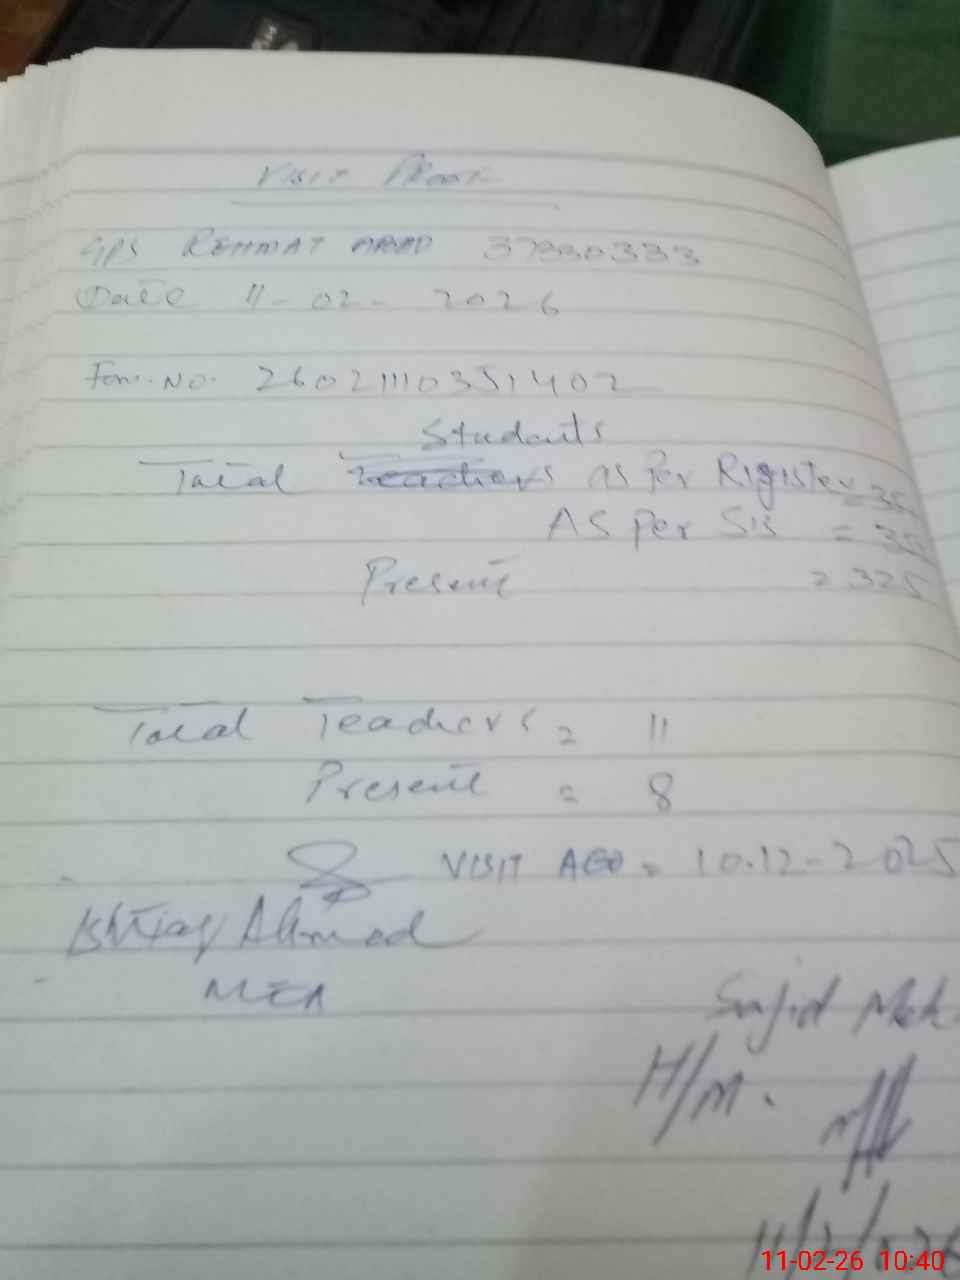 Visit Proof
GPS REHMAT ABAD 37330333
Date 11-02-2026
Form. No. 26021110351402
Students
Total Teachers as Per Rigister = 35
AS Per SIS = 35
Present = 325
Total Teachers = 11
Present = 8
VISIT AEO = 10.12-2025
Ishtiaq Ahmad
MEA
Sajid Meh
H/M.
11/2/2026
11-02-26 10:40